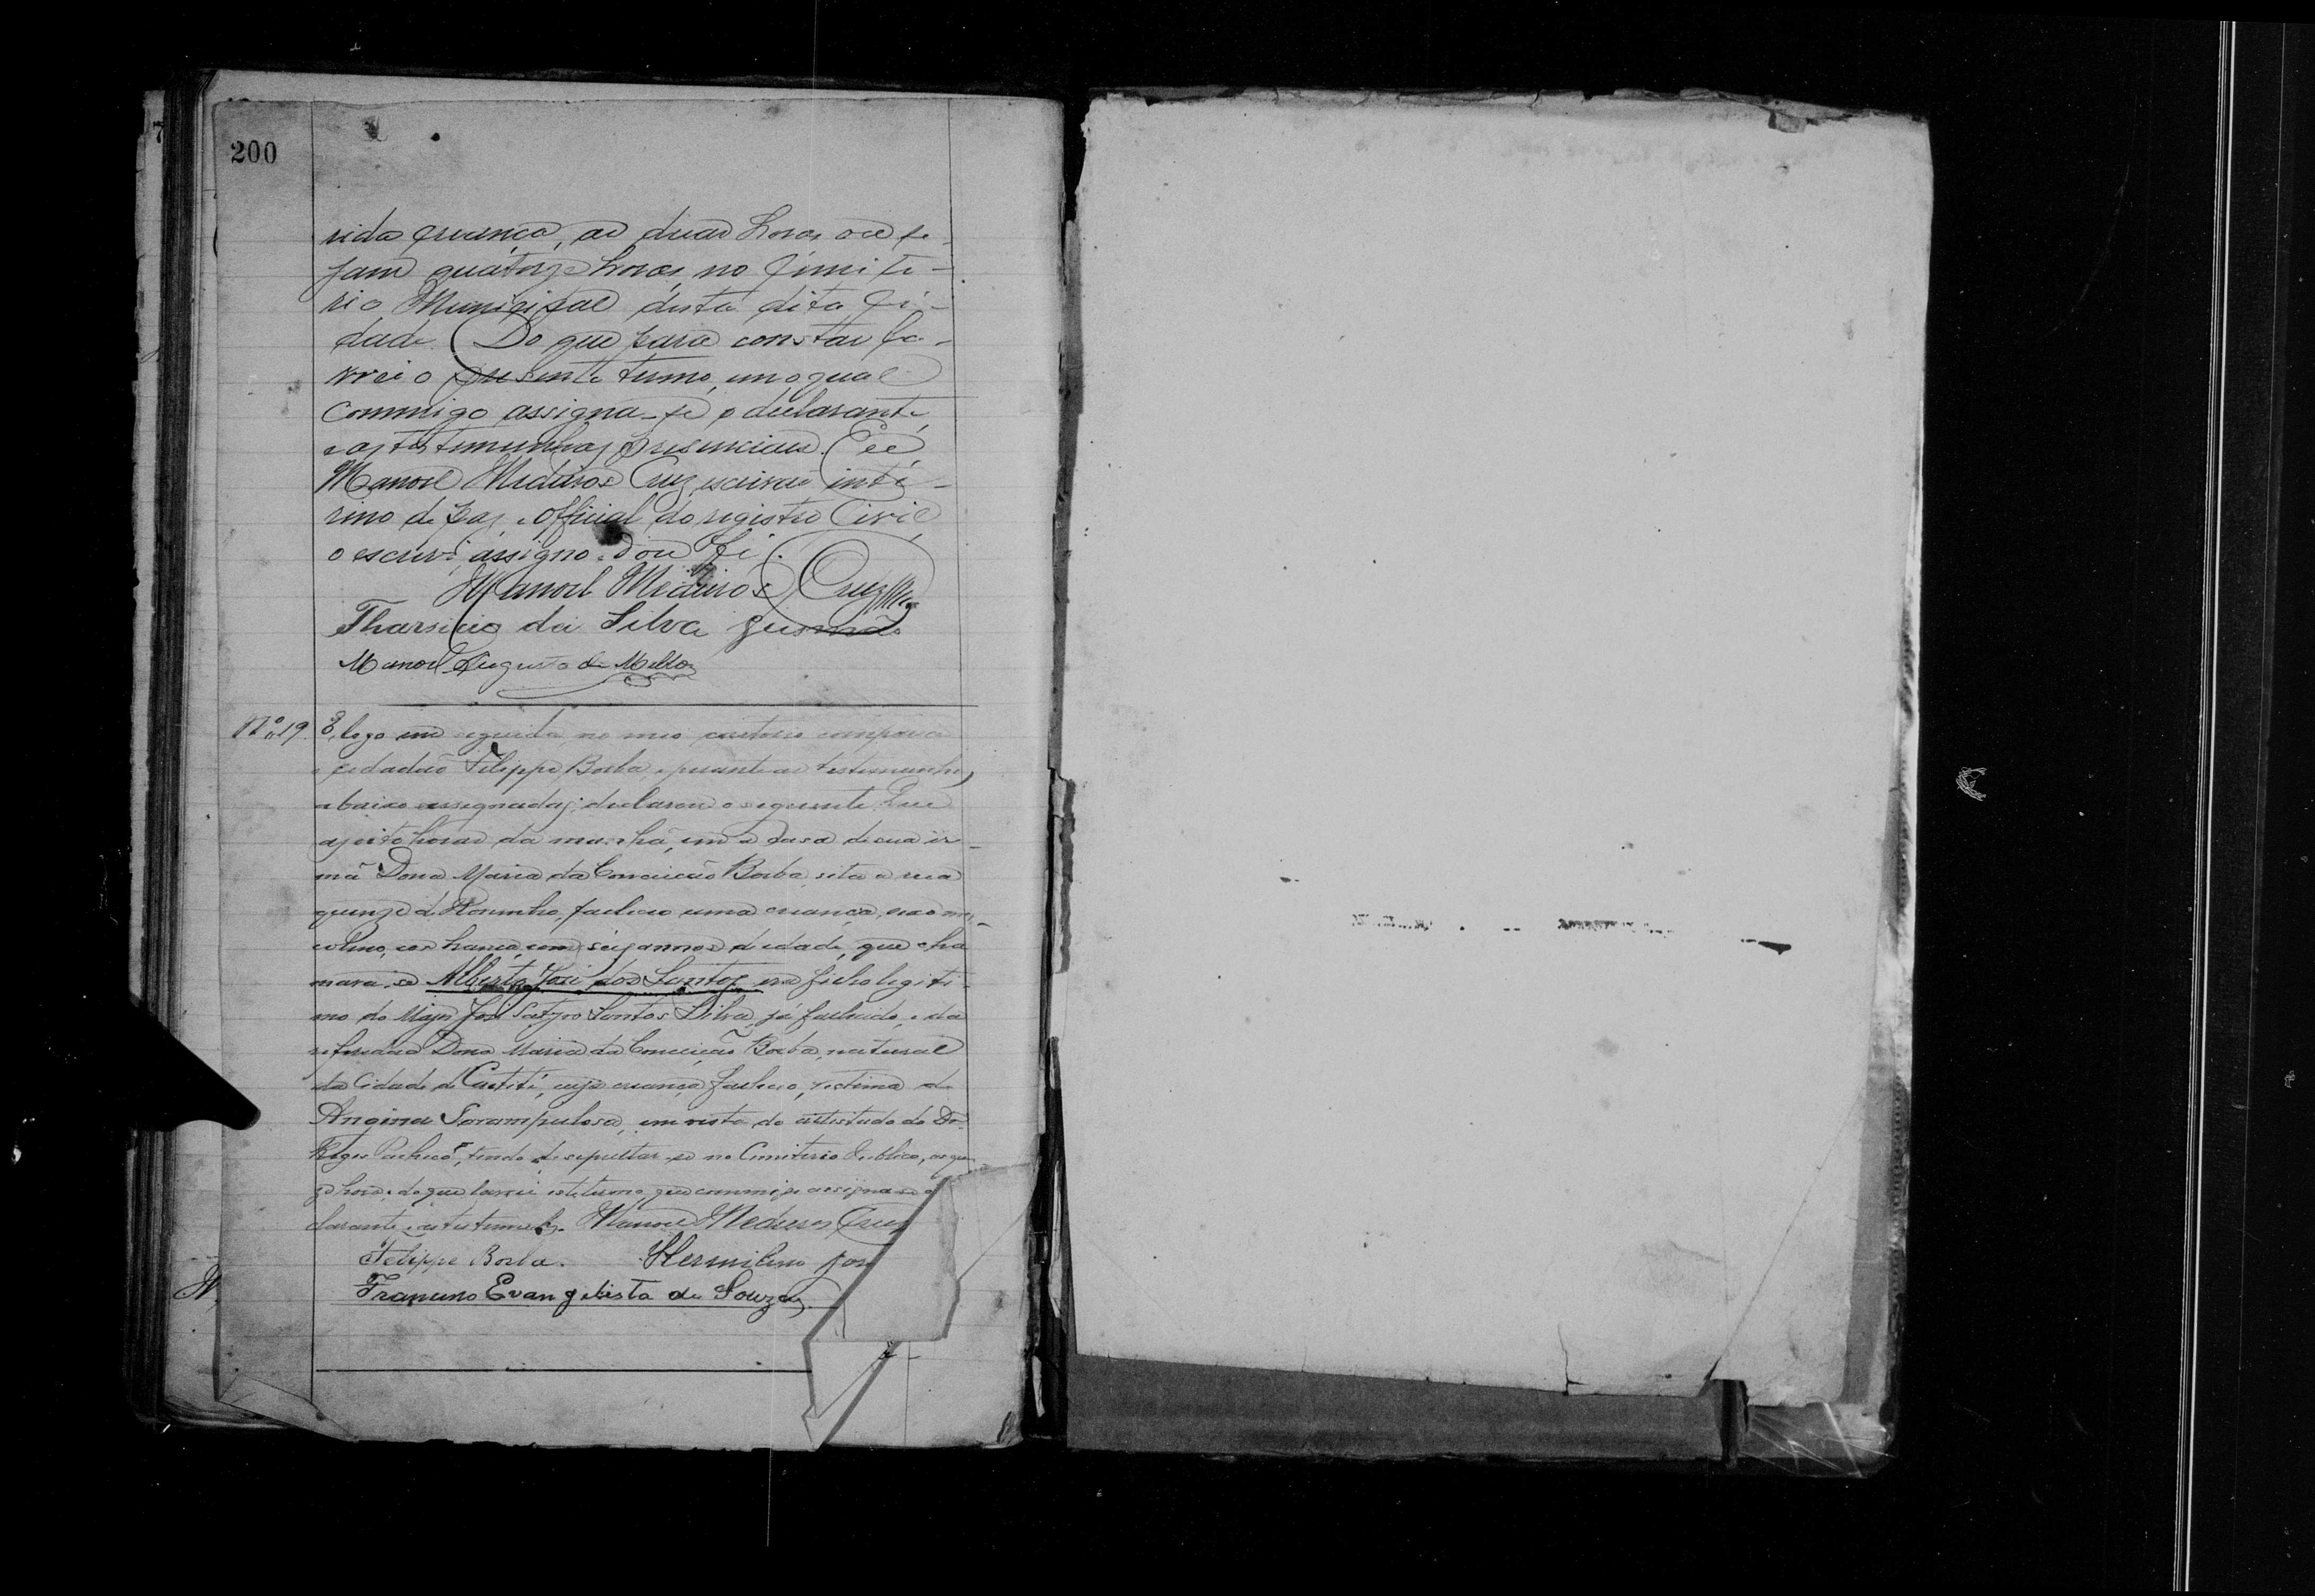 200
rida creança, as duas horas ou se-
jam quatorze horas, no Cimite-
rio Municipal desta dita Ci-
dade. Do que para constar la-
vrei o presente termo, em o qual
commigo assigna-se o declarante,
e as testemunhas presenciaes. Eu
Manoel Medeiros Cruz, escrivão inte-
rino de Paz e Official do registro Civil
o escrevi, assigno e dou fé.
Manoel Medeiros Cruz
Tharsicio da Silva Gusmão
Manoel Augusto de Mello
Nº 19. E, logo em seguida, no meo cartorio compareceo
o cidadão Felippe Borba, e perante as testemunhas
abaixo assignadas; declarou o seguinte. Que
as oito horas da manhã, em a casa de sua ir-
mã Dona Maria da Conceição Borba, sita a rua
quinze de Novembro, falleceo uma creança, sexo mas-
colino, cor branca, com seis annos de edade, que cha
mava-se Alberto José dos Santos, era filho legiti-
mo do Major José Satyro Santos Silva, já fallecido, e da
referida Dona Maria da Conceição Borba, natural
da Cidade de Caetité, cuja creança falleceo, victima de
Angina Sarampulosa, em vista do attestado do Dr.
Pacheco, tendo de sepultar-se no Cimiterio Publico, as
horas, do que lavrei este termo, que commigo assigna-se o
clarante e as testemunhas. Manoel Medeiros Cruz
Felippe Borba. Hermilino José
Francino Evangelista de Souza.
N.